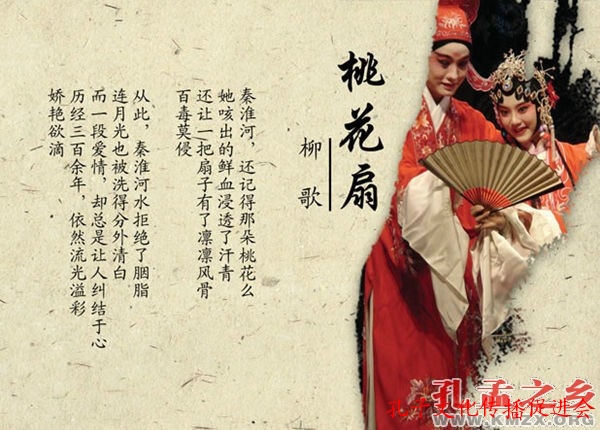 桃花扇
柳歌
秦淮河，还记得那朵桃花么
她咳出的鲜血浸透了汗青
还让一把扇子有了凛凛风骨
百毒莫侵
从此，秦淮河水拒绝了胭脂
连月光也被洗得分外清白
而一段爱情，却总是让人纠结于心
历经三百余年，依然流光溢彩
娇艳欲滴
孔孟之乡
孔孟文化传播促进会
WWW.KMZX.ORG